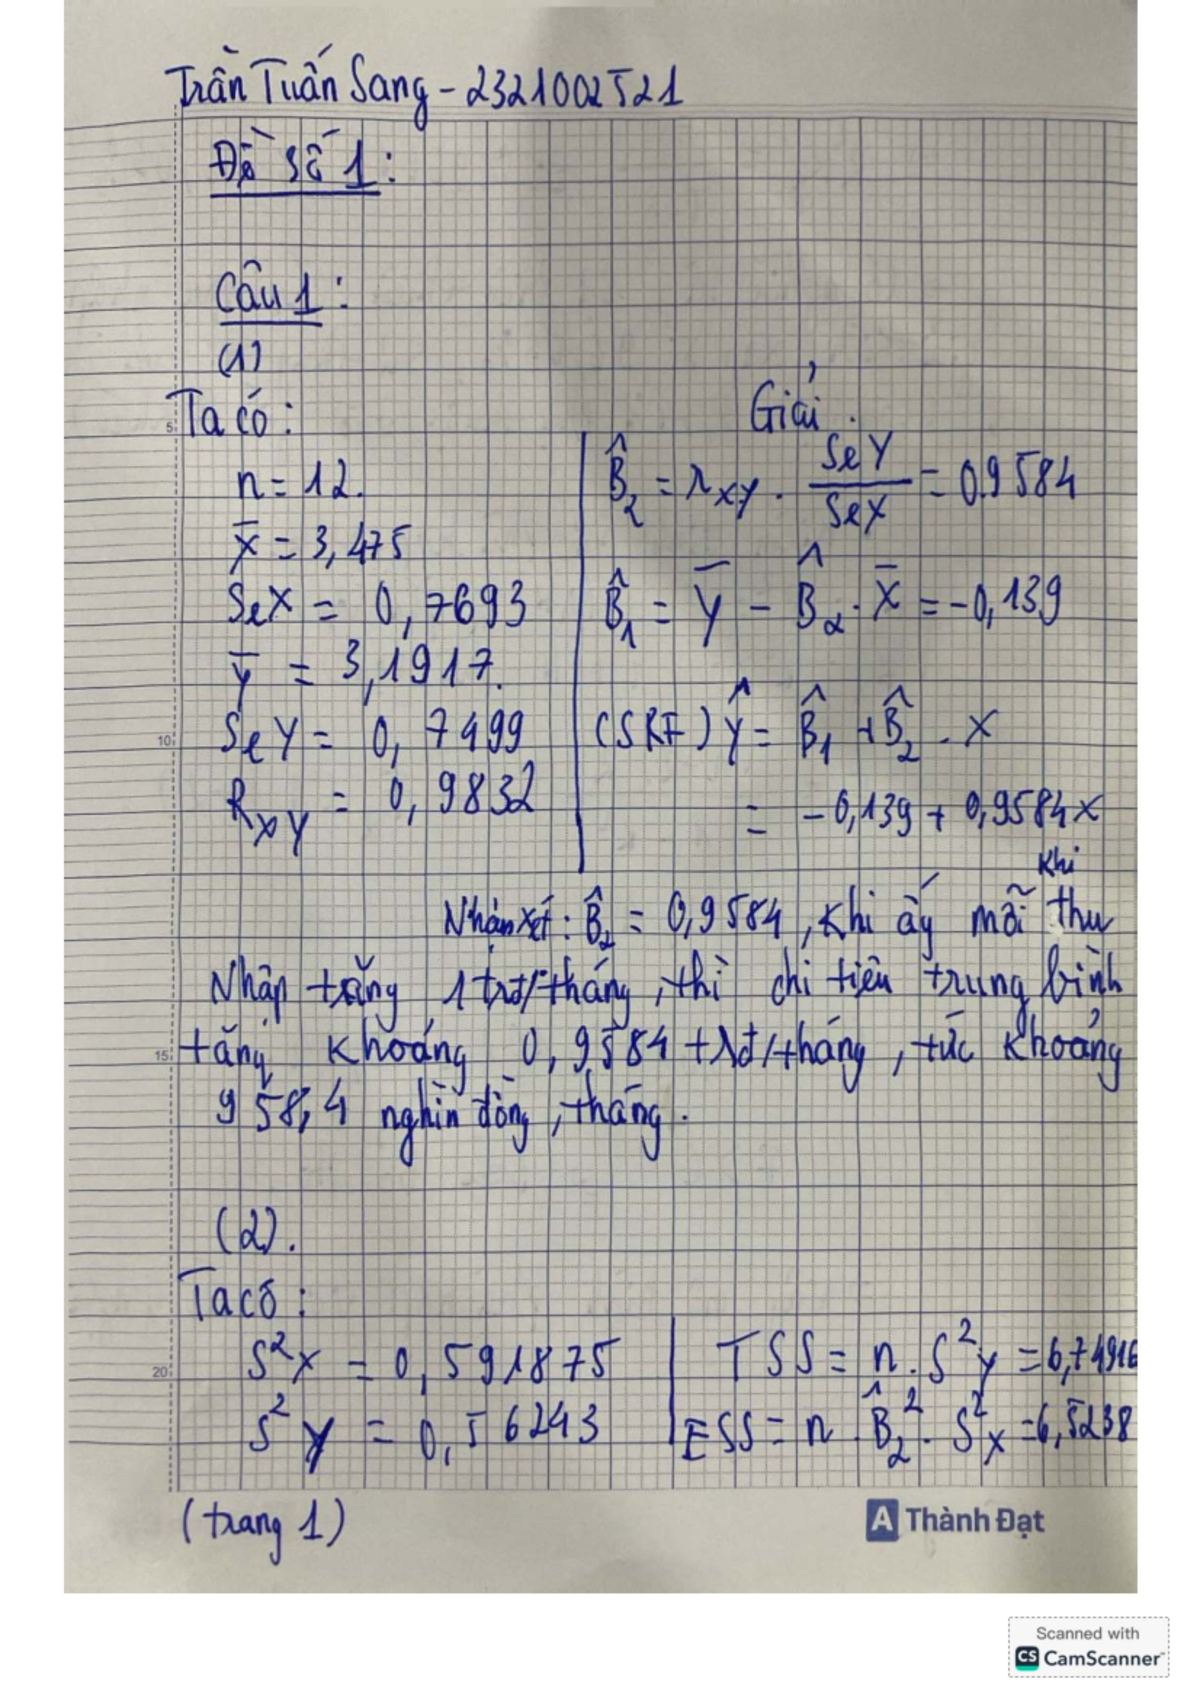 Trần Tuấn Sang - 2321002521
Đề số 1:
Câu 1:
(1)
Giải.
Ta có:
n = 12.
X̄ = 3,475
SeX = 0,7693
Ȳ = 3,1917.
SeY = 0,7499
R_XY = 0,9832
B̂₂ = r_XY . SeY / SeX = 0.9584
B̂₁ = Ȳ - B̂₂ . X̄ = -0,139
(SRF) Ŷ = B̂₁ + B̂₂ . X
= -0,139 + 0,9584x
khi
Nhận xét: B̂₂ = 0,9584, khi ấy mỗi thu
Nhập tăng 1 trđ/tháng, thì chi tiêu trung bình
tăng khoảng 0,9584 trđ/tháng, tức khoảng
958,4 nghìn đồng, tháng.
(2).
Ta có:
S²X = 0,591875
S²Y = 0,56243
TSS = n . S²Y = 6,74916
ESS = n . B̂₂² . S²X = 6,5238
(trang 1)
A Thành Đạt
5
10
15
20
Scanned with
CS CamScanner